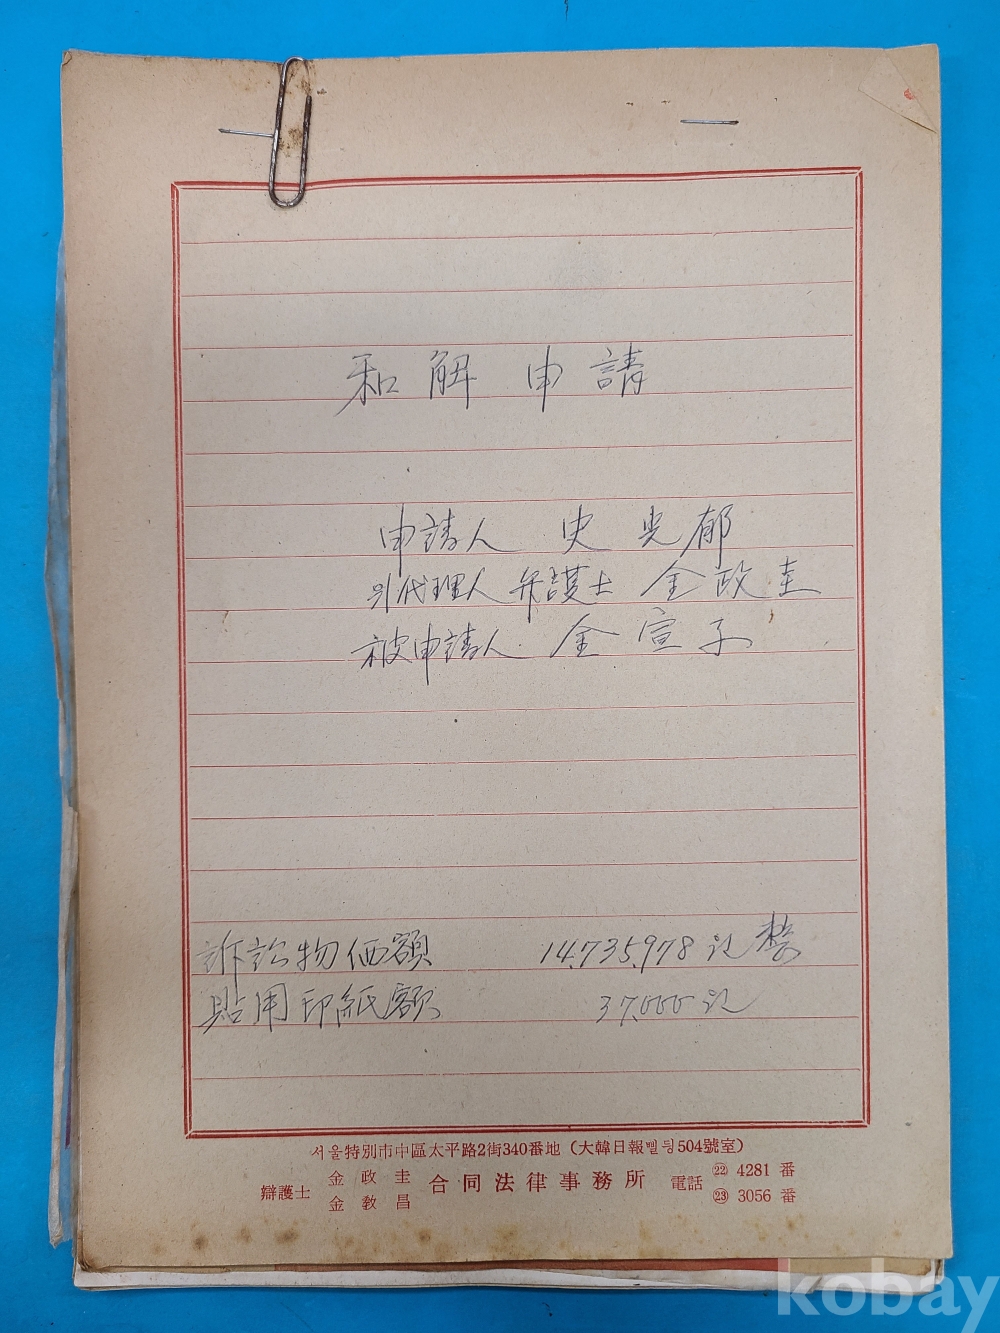 和解申請
申請人 史光郁
위代理人 弁護士 金政圭
被申請人 金宣子
訴訟物価額 14,735,978원整
貼用印紙額 37,000원
서울特別市中區太平路2街340番地 (大韓日報삘딩504號室)
辯護士 金政圭 金敎昌 合同法律事務所 電話 ㉒ 4281 番 ㉓ 3056 番
kobay